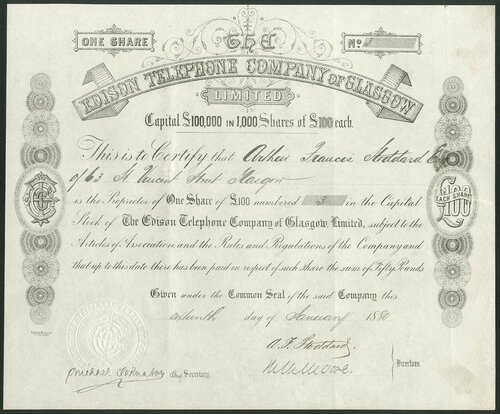 ONE SHARE
THE
No.
EDISON TELEPHONE COMPANY OF GLASGOW
LIMITED
Capital £100,000 IN 1,000 Shares of £100 each.
This is to Certify that Arthur Francis Stoddard Esq
of 63 St Vincent Street Glasgow
is the Proprietor of One Share of £100 numbered 3 in the Capital
Stock of The Edison Telephone Company of Glasgow Limited, subject to the
Articles of Association and the Rules and Regulations of the Company and
that up to this date there has been paid in respect of such Share the sum of Fifty Pounds
EACH SHARE
£100
Given under the Common Seal of the said Company this
day of January 1880
A. F. Stoddard
Directors.
Secretary.